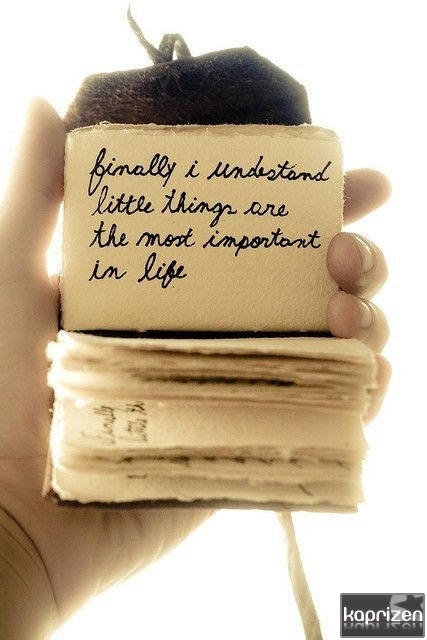 finally i undestand
little things are
the most important
in life
finally
little th
kaprizen